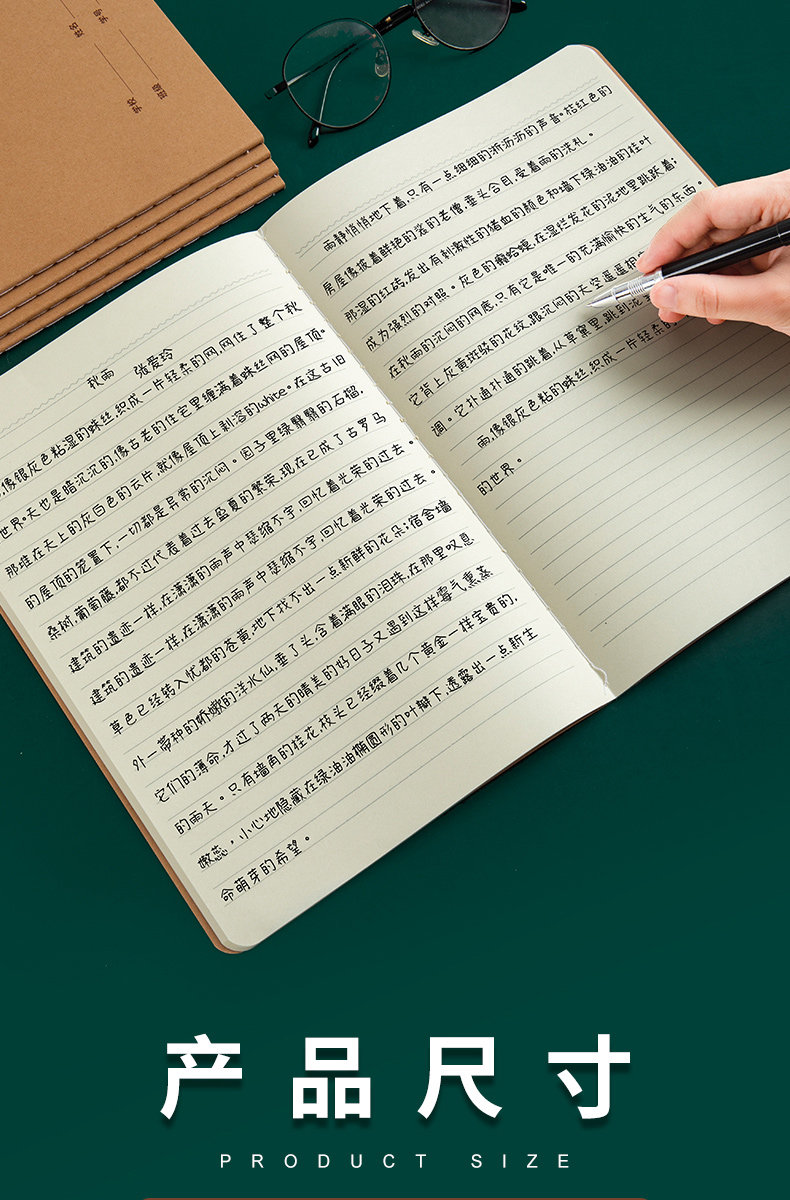 学校
班级
姓名
学号
秋雨 张爱玲
,像银灰色粘湿的蛛丝,织成一片轻柔的网,网住了整个秋
世界。天也是暗沉沉的,像古老的住宅里缠满着蛛丝网的屋顶。
那堆在天上的灰白色的云片,就像屋顶上剥溶的white。在这古旧
的屋顶的笼罩下,一切都是异常的沉闷。园子里绿翳翳的石榴,
桑树,葡萄藤,都不过代表着过去盛夏的繁荣,现在已成了古罗马
建筑的遗迹一样,在潇潇的雨声中瑟缩不宁,回忆着光荣的过去。
建筑的遗迹一样,在潇潇的雨声中瑟缩不宁,回忆着光荣的过去。
草色已经转入忧郁的苍黄,地下找不出一点新鲜的花朵;宿舍墙
外一带种的娇嫩的洋水仙,垂了头,含着满眼的泪珠,在那里叹息
它们的薄命,才过了两天的晴美的好日子又遇到这样霉气熏蒸
的雨天。只有墙角的桂花,枝头已经缀着几个黄金一样宝贵的,
嫩蕊,小心地隐藏在绿油油椭圆形的叶瓣下,透露出一点新生
命萌芽的希望。
雨静悄悄地下着,只有一点细细的淅沥沥的声音。桔红色的
房屋像披着鲜艳的袈裟的老僧,垂头合目,受着雨的洗礼。
那湿的红砖,发出有刺激性的猪血的颜色和墙下绿油油的桂叶
成为强烈的对照。灰色的癞蛤蟆,在湿烂发花的泥地里跳跃着;
在秋雨的沉闷的网底,只有它是唯一的充满愉快的生气的东西。
它背上灰黄斑驳的花纹,跟沉闷的天空遥遥相
调。它扑通扑通的跳着,从草窠里,跳到泥
雨,像银灰色粘的蛛丝,织成一片轻柔的
的世界。
产品尺寸
PRODUCT SIZE